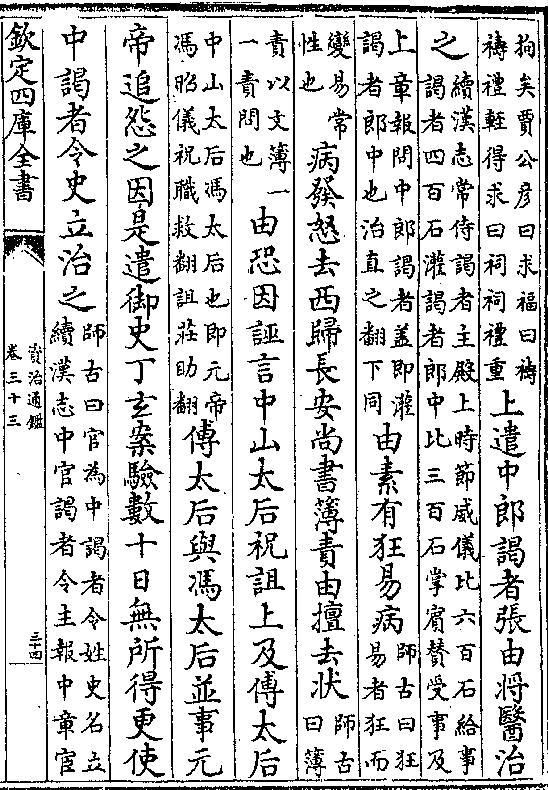 拘矣賈公彦曰求福曰禱
禱禮輕得求曰祠祠禮重
上遣中郎謁者張由將醫治
之
續漢志常侍謁者主殿上時節威儀比六百石給事
謁者四百石灌謁者郎中比三百石掌賓賛受事及
上章報問中郎謁者蓋即灌
謁者郎中也治直之翻下同
由素有狂易病
師古曰狂
易者狂而
變易常
性也
病發怒去西歸長安尚書簿責由擅去狀
師古
曰簿
責以文簿一
一責問也
由恐因誣言中山太后祝詛上及傅太后
中山太后馮太后也即元帝
馮昭儀祝職救翻詛莊助翻
傅太后與馮太后並事元
帝追怨之因是遣御史丁玄案驗數十日無所得更使
中謁者令史立治之
師古曰官為中謁者令姓史名立
續漢志中官謁者令主報中章宦
欽定四庫全書
資治通鑑
卷三十三
三十四